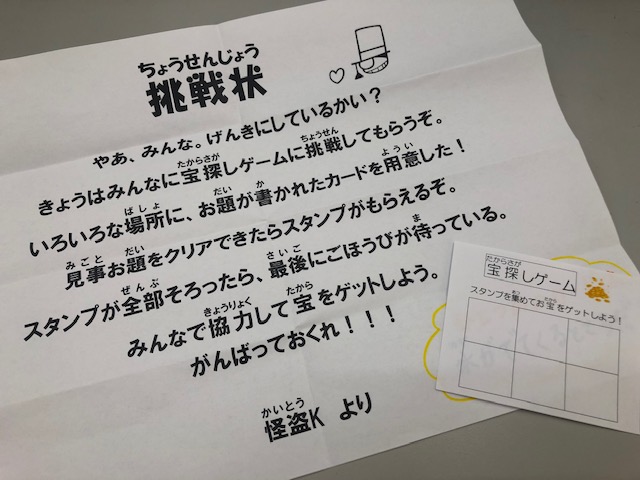 ちょうせんじょう
挑戦状
やあ、みんな。げんきにしているかい？
たからさが ちょうせん
きょうはみんなに宝探しゲームに挑戦してもらうぞ。
ばしょ だい か ようい
いろいろな場所に、お題が書かれたカードを用意した！
みごと だい
見事お題をクリアできたらスタンプがもらえるぞ。
ぜんぶ さいご ま
スタンプが全部そろったら、最後にごほうびが待っている。
きょうりょく たから
みんなで協力して宝をゲットしよう。
がんばっておくれ！！！
かいとう
怪盗K より
たからさが
宝探しゲーム
あつ たから
スタンプを集めてお宝をゲットしよう！